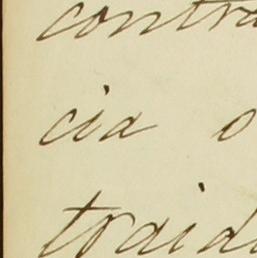 contra
cia o
traid